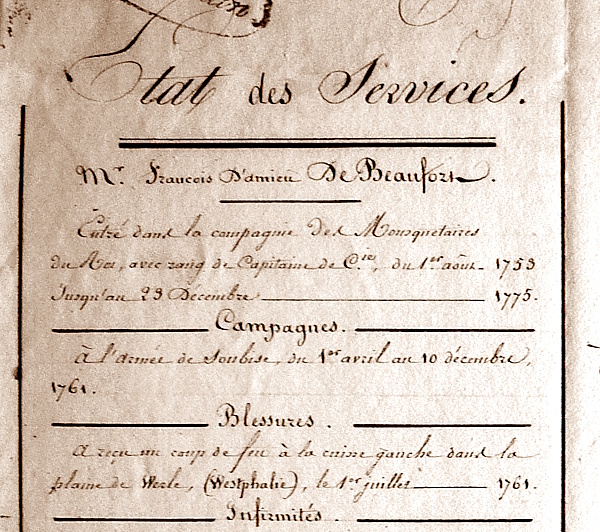 Etat des Services.
Mr. François D'amieu De Beaufort.
Entré dans la compagnie des Mousquetaires
du Roi, avec rang de Capitaine de C.ie, du 1er août 1753
Jusqu'au 23 Décembre 1775.
Campagnes.
À l'armée de Soubise, du 1er avril au 10 décembre,
1761.
Blessures.
A reçu un coup de feu à la cuisse gauche dans la
plaine de Werle, (Westphalie), le 1er juillet 1761.
Infirmités.